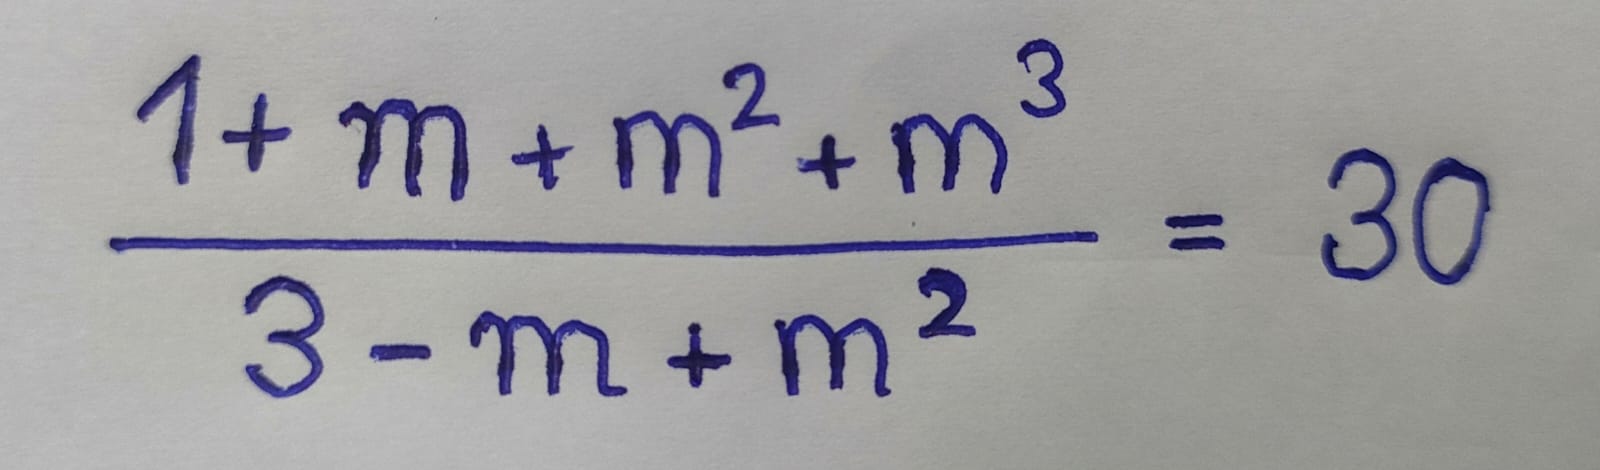 1 + m + m² + m³
3 - m + m² = 30